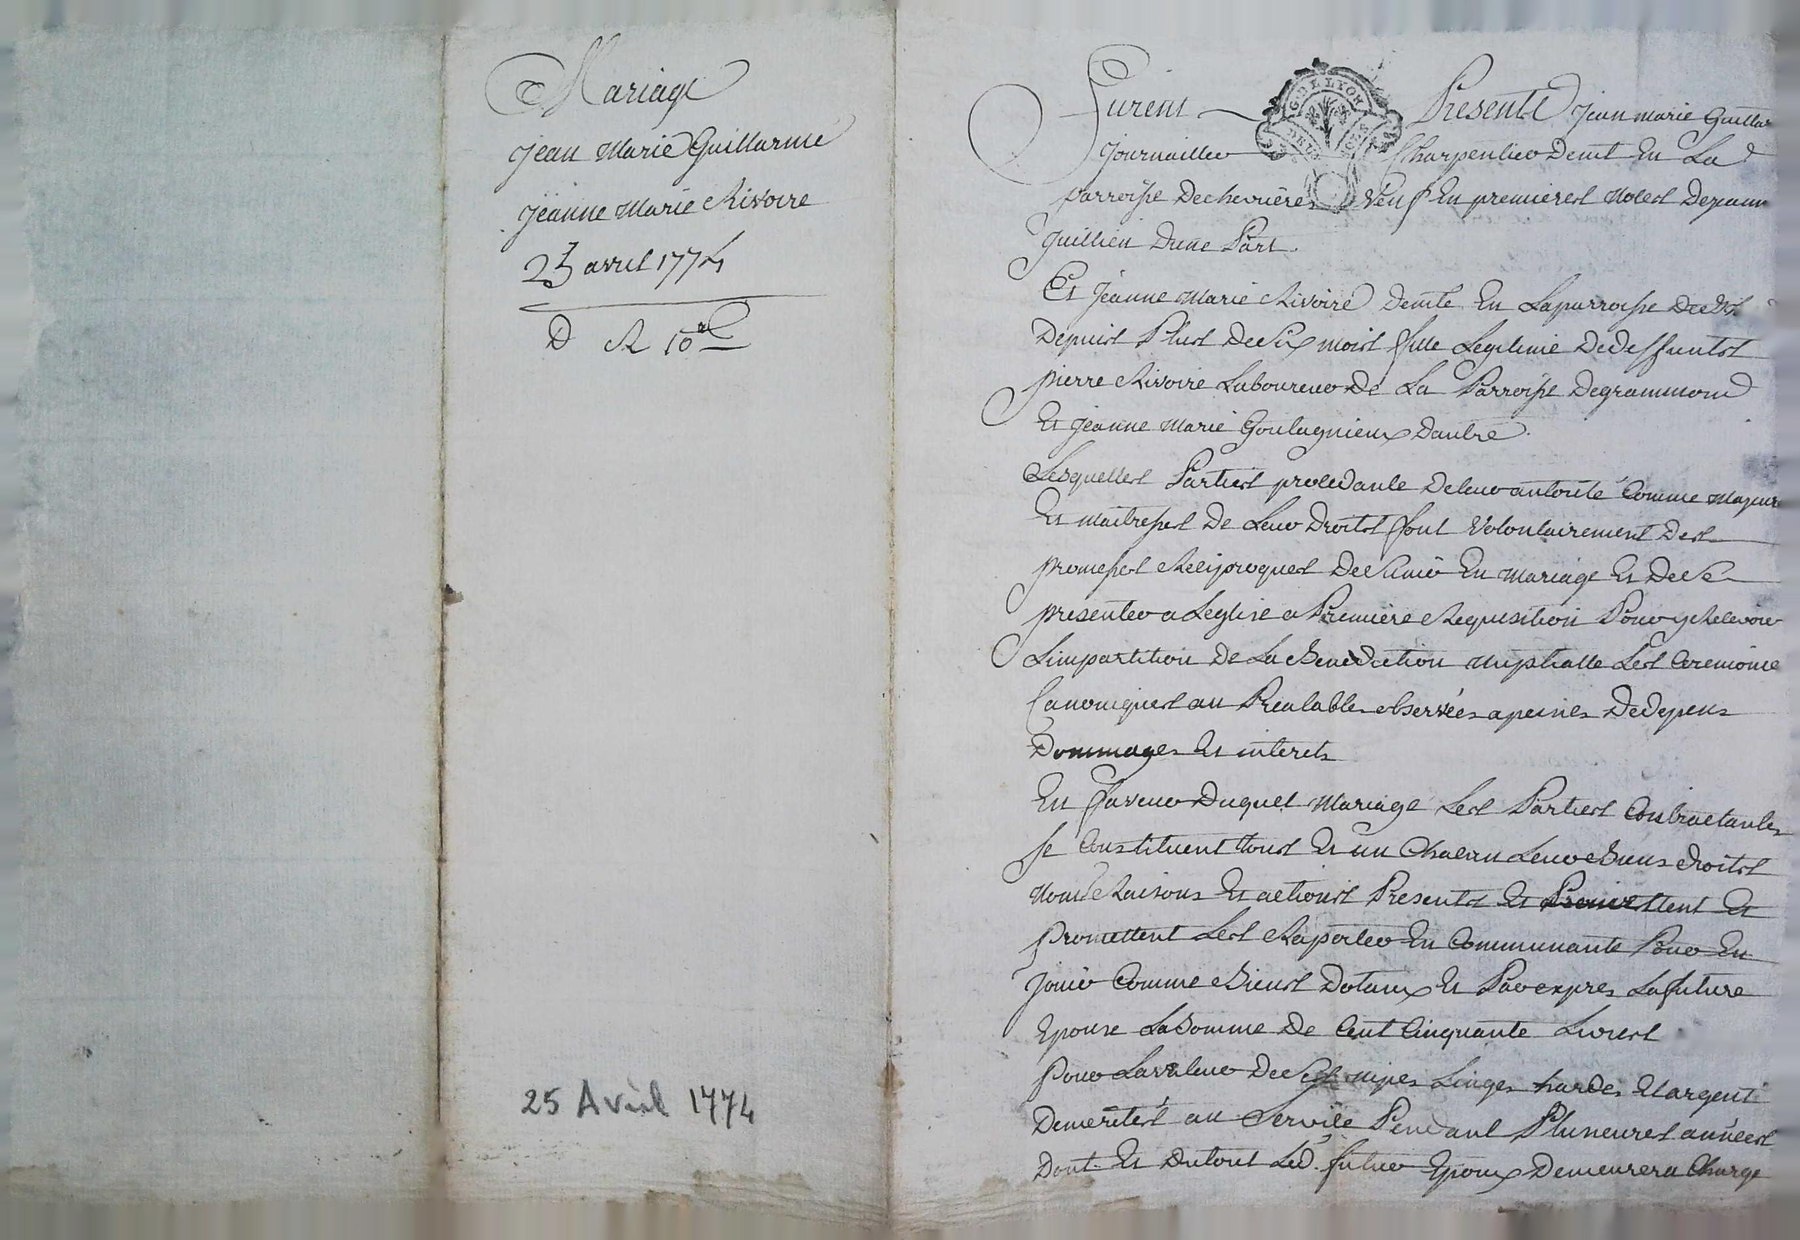 Mariage
jean Marie Guillarme
jeanne Marie Rivoire
25 avril 1774
D R 10
25 Avril 1774
G. DE LYON
Furent Presents jean marie Guillar
journaillier Charpentier demt En La
parroisse De chevrières Veuf En premieres noces De
juillien Dune Part.
Et jeanne Marie Rivoire demte En Laparroisse
Depuis Plus De Six mois fille Legitime De deffunts
pierre Rivoire Laboureur De La Parroisse De grammond
Et jeanne Marie Goutagnieux Dautre.
Lesquelles Parties procedante De leur autorité Comme majeurs
Et maitresses De Leur Droits font Volontairement Des
promesses Reciproques De Sunir En mariage Et De Se
presenter a Leglise a Premiere Requisition Pour y Recevoir
Limpartition De La Benediction nuptialle Les Ceremonie
Canoniques au Prealables observées a peines De depens
Dommages Et interets
En faveur Duquel Mariage Les Parties Contractantes
se Constituent tous Et un Chacun Leur Biens droits
noms Raisons Et actions Presents Et Et
promettent Les Raporter En Communauté Pour En
jouir Comme Biens Dotaux Et Par expres La future
Epouse La Somme De Cent Cinquante Livres
Pour La valeur De Ses nipes Linges hardes Et argent
De merités au Service Pendant Plusieures années
Dont Et Du tout Led. futur Epoux Demeurera Chargé